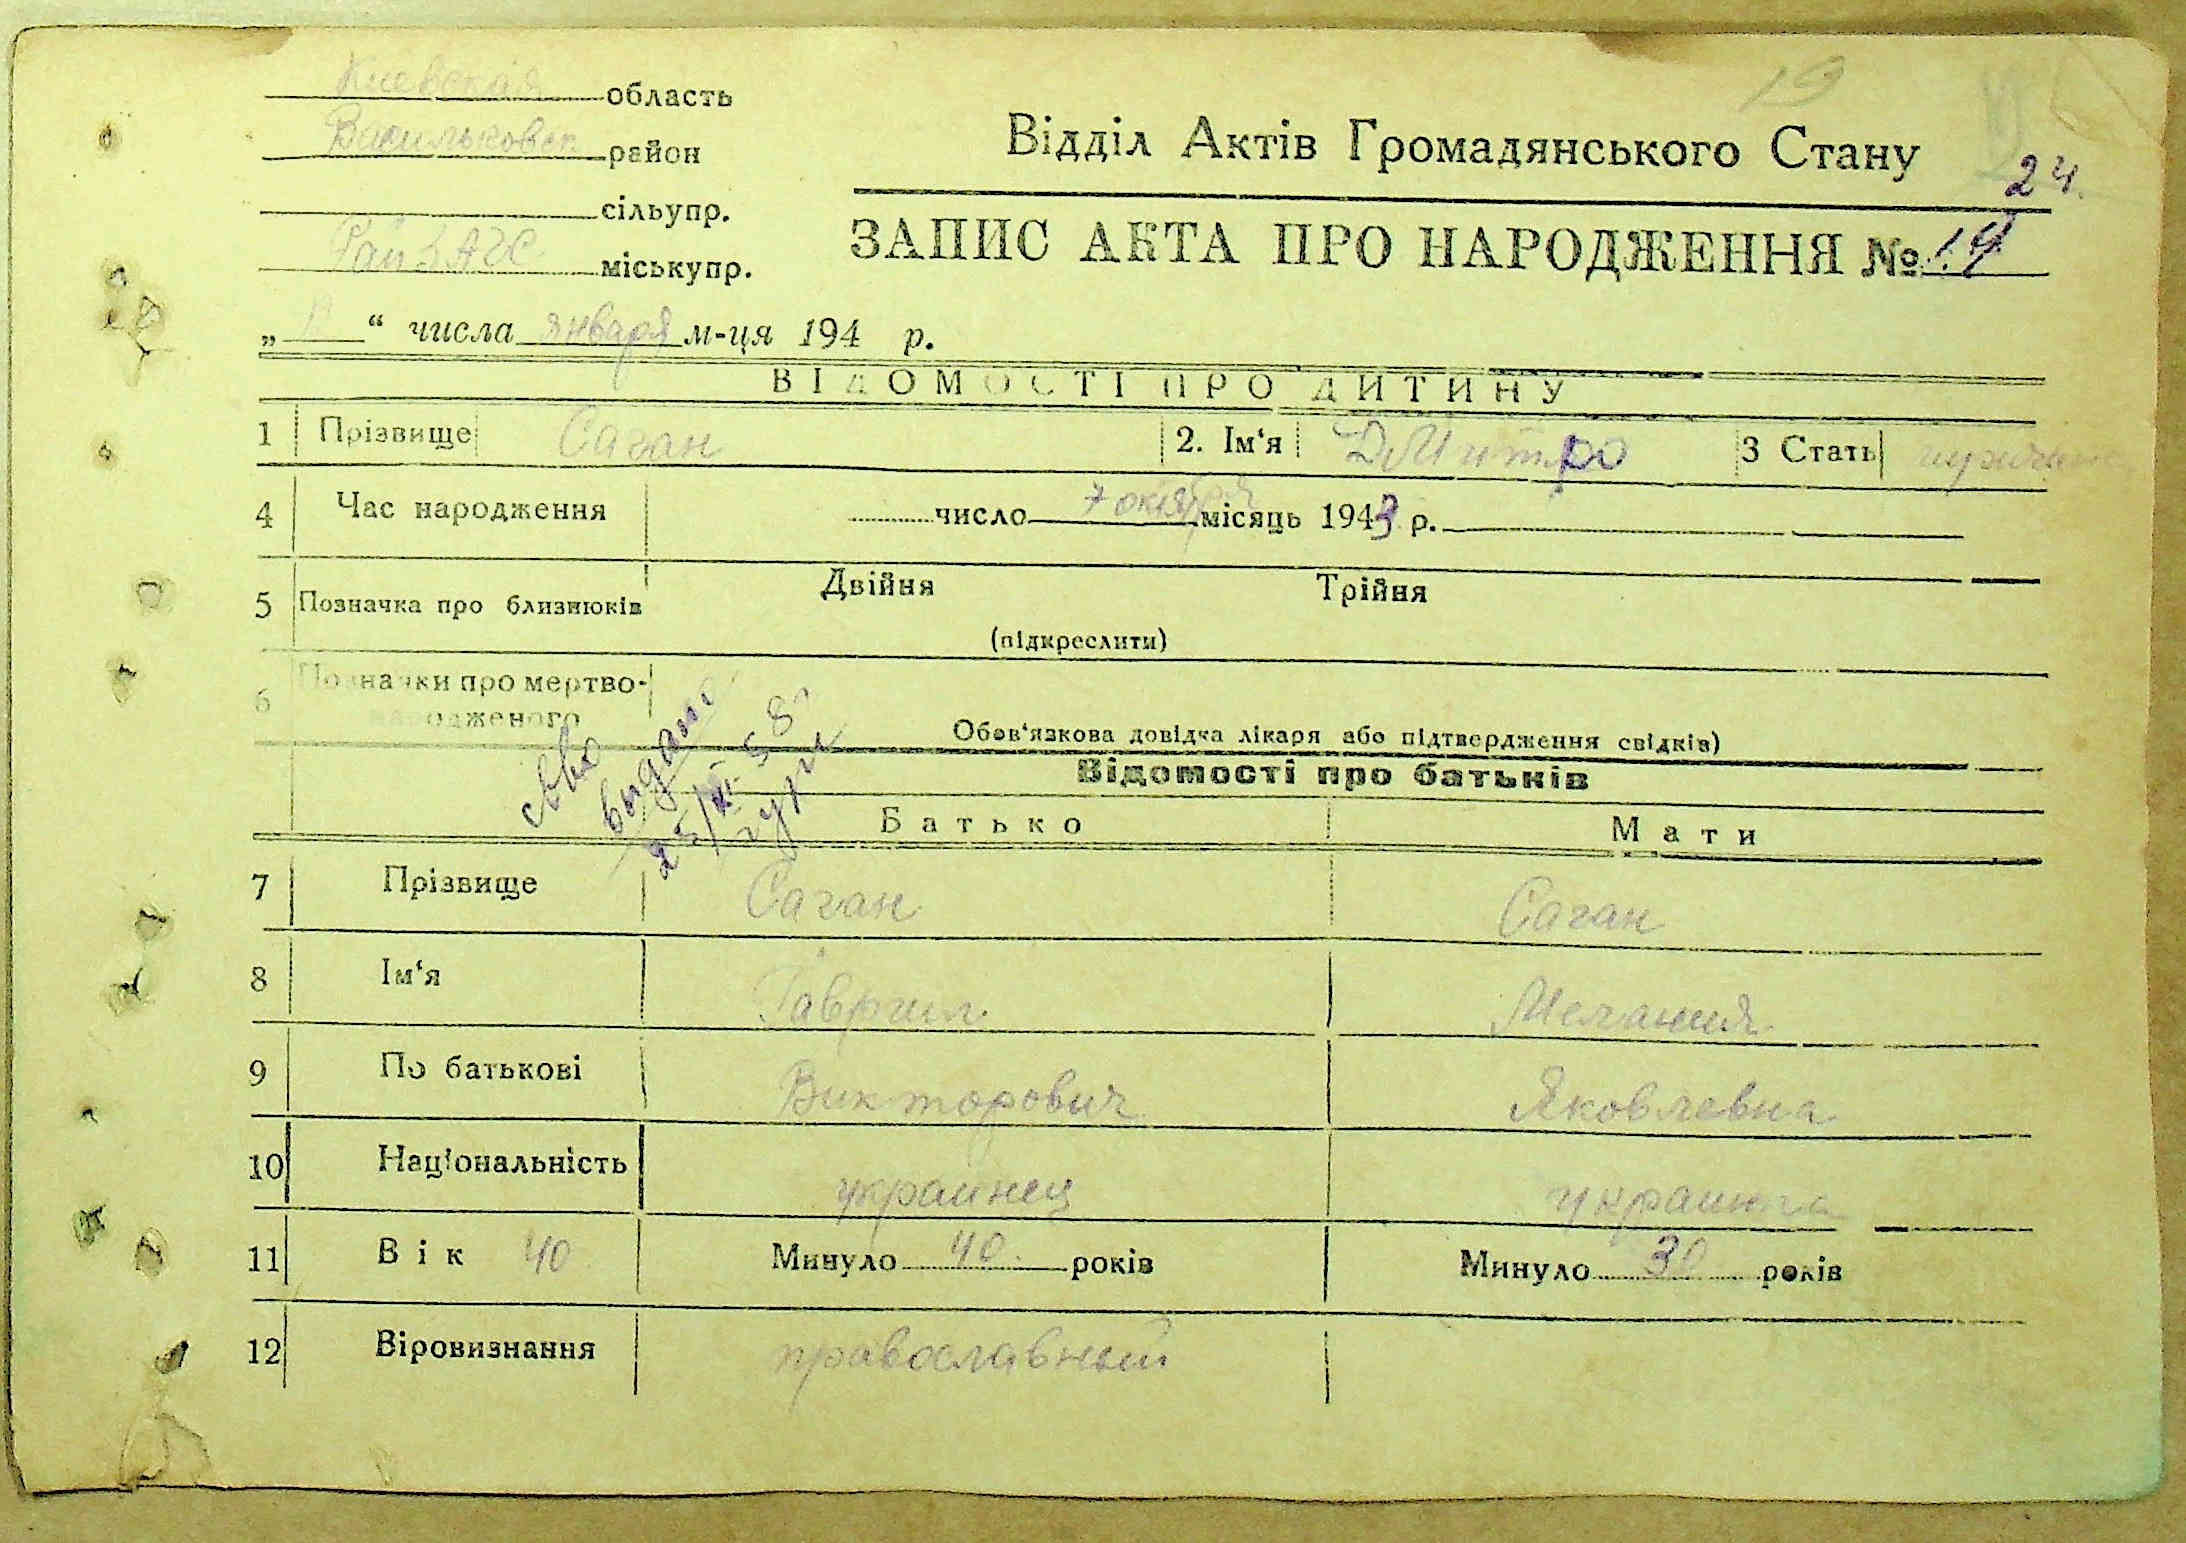 19
Киевская область
Васильковск район
сільупр.
Рай ЗАГС міськупр.
Відділ Актів Громадянського Стану
24.
ЗАПИС АКТА ПРО НАРОДЖЕННЯ №
„ “ числа января м-ця 194 р.
ВІДОМОСТІ ПРО ДИТИНУ
1 Прізвище Саган 2. Ім‘я Дмитро 3 Стать мужчина
4 Час народження число 7 октября місяць 1943 р.
5 Позначка про близнюків Двійня Трійня
(підкреслити)
6 Позначки про мертво-
народженого
Обов‘язкова довідка лікаря або підтвердження свідків)
видано
Відомості про батьків
Батько Мати
7 Прізвище Саган Саган
8 Ім‘я Гаврил Мелания
9 По батькові Викторович Яковлевна
10 Національність украинец украинка
11 Вік 40 Минуло 40. років Минуло 30 років
12 Віровизнання православный